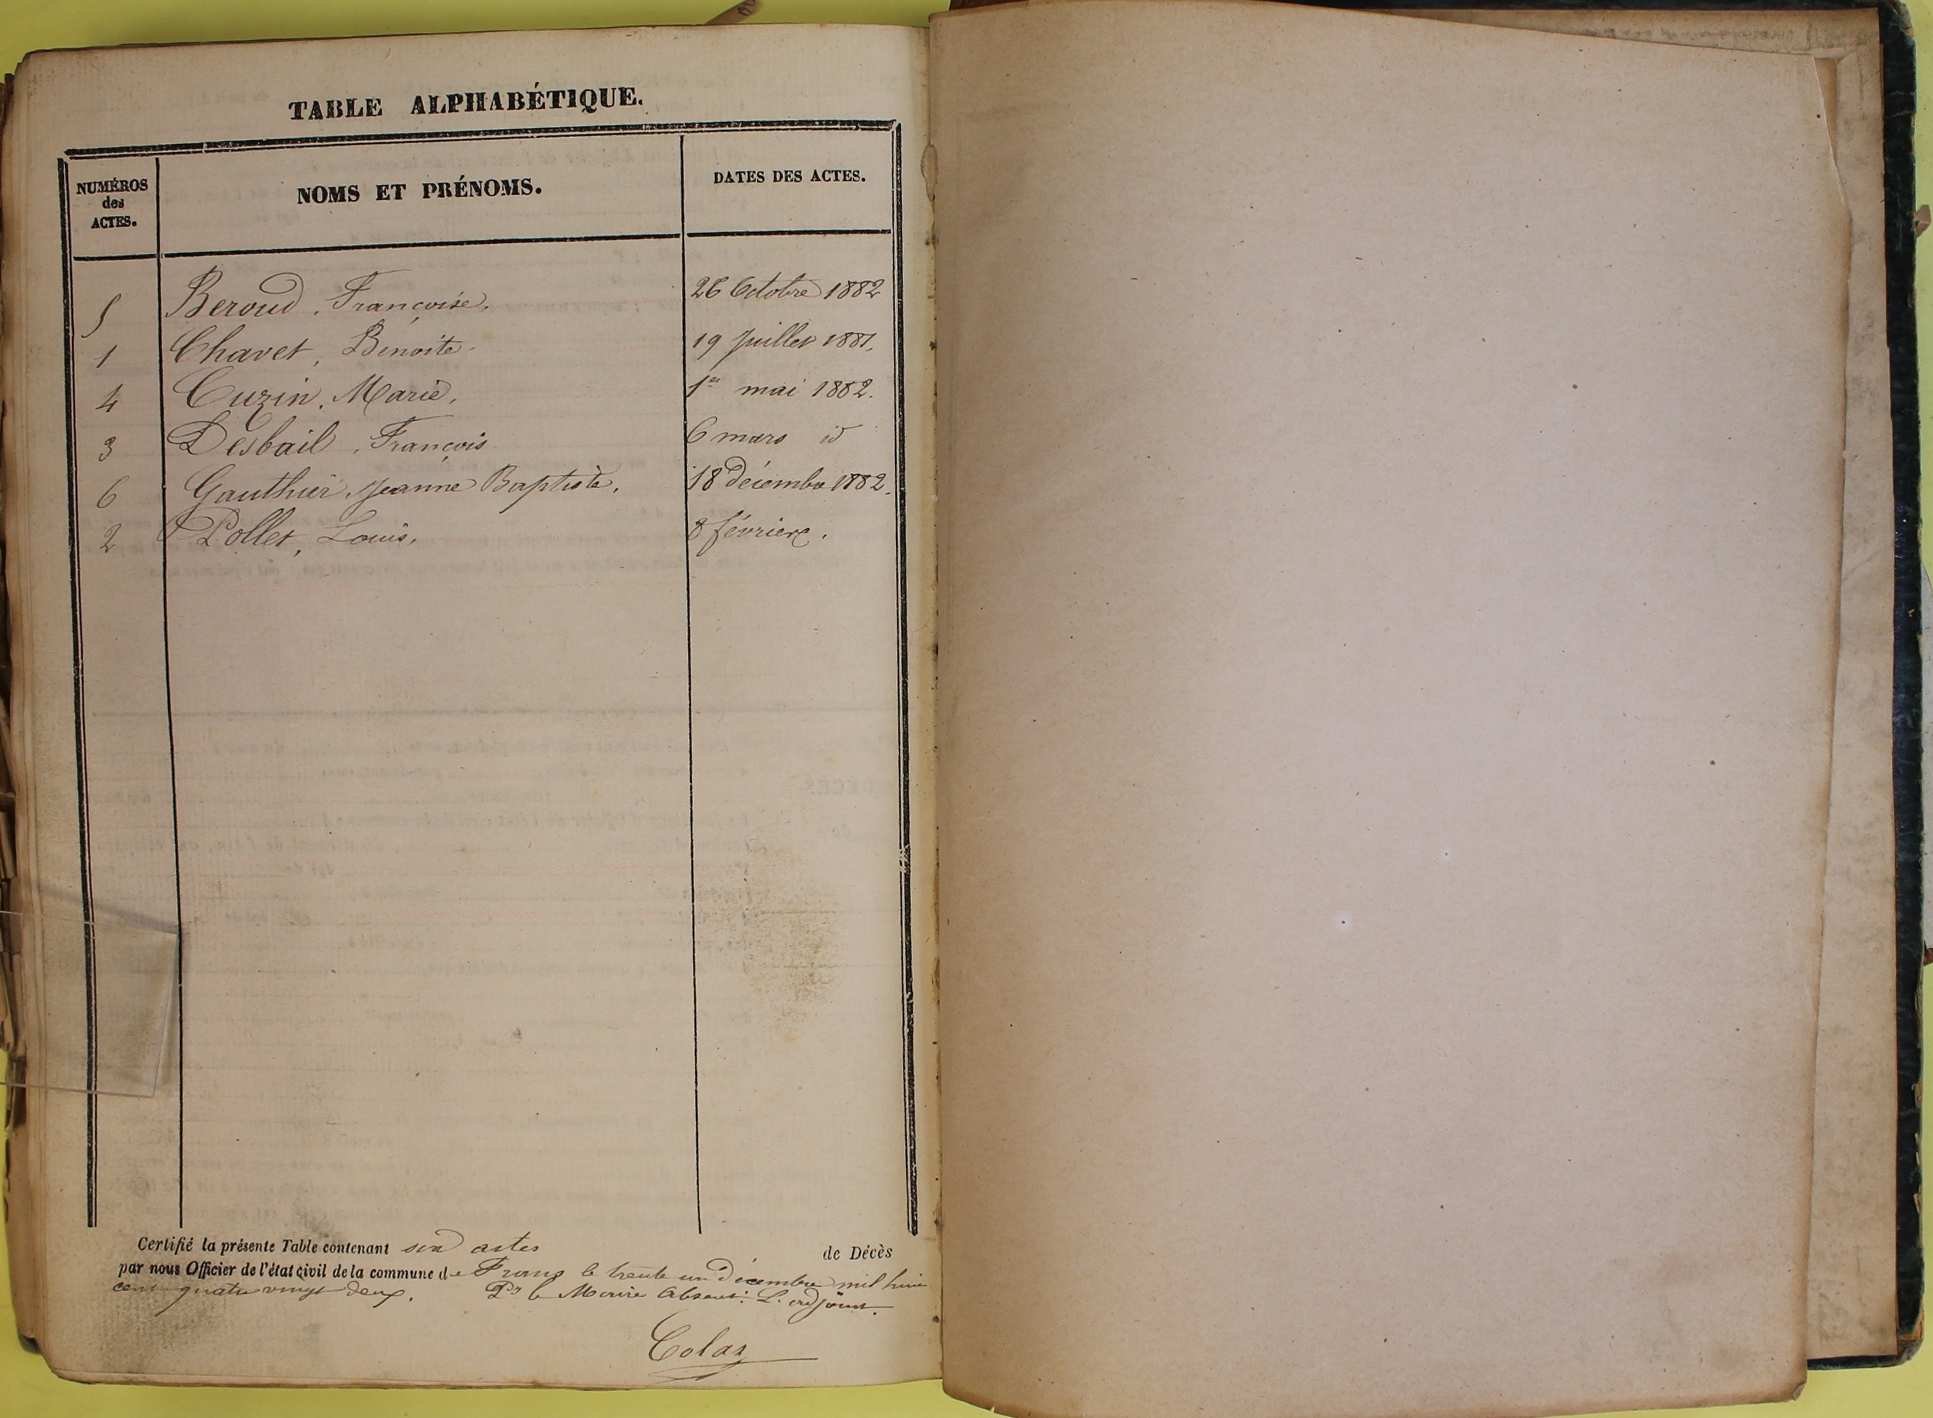 TABLE ALPHABÉTIQUE.
NUMÉROS des ACTES.
NOMS ET PRÉNOMS.
DATES DES ACTES.
5 Beroud, Françoise. 26 Octobre 1882
1 Chavet, Benoite. 19 juillet 1881.
4 Cuzin, Marie. 1er mai 1882.
3 Desbail, François 6 mars id
6 Gauthier, Jeanne Baptiste. 18 décembre 1882.
2 Pollet, Louis. 8 février.
Certifié la présente Table contenant six actes de Décès
par nous Officier de l'état civil de la commune de Frans le trente un Décembre mil huit
cent quatre vingt deux. Pr le Maire Absent. L'adjoint.
Colas